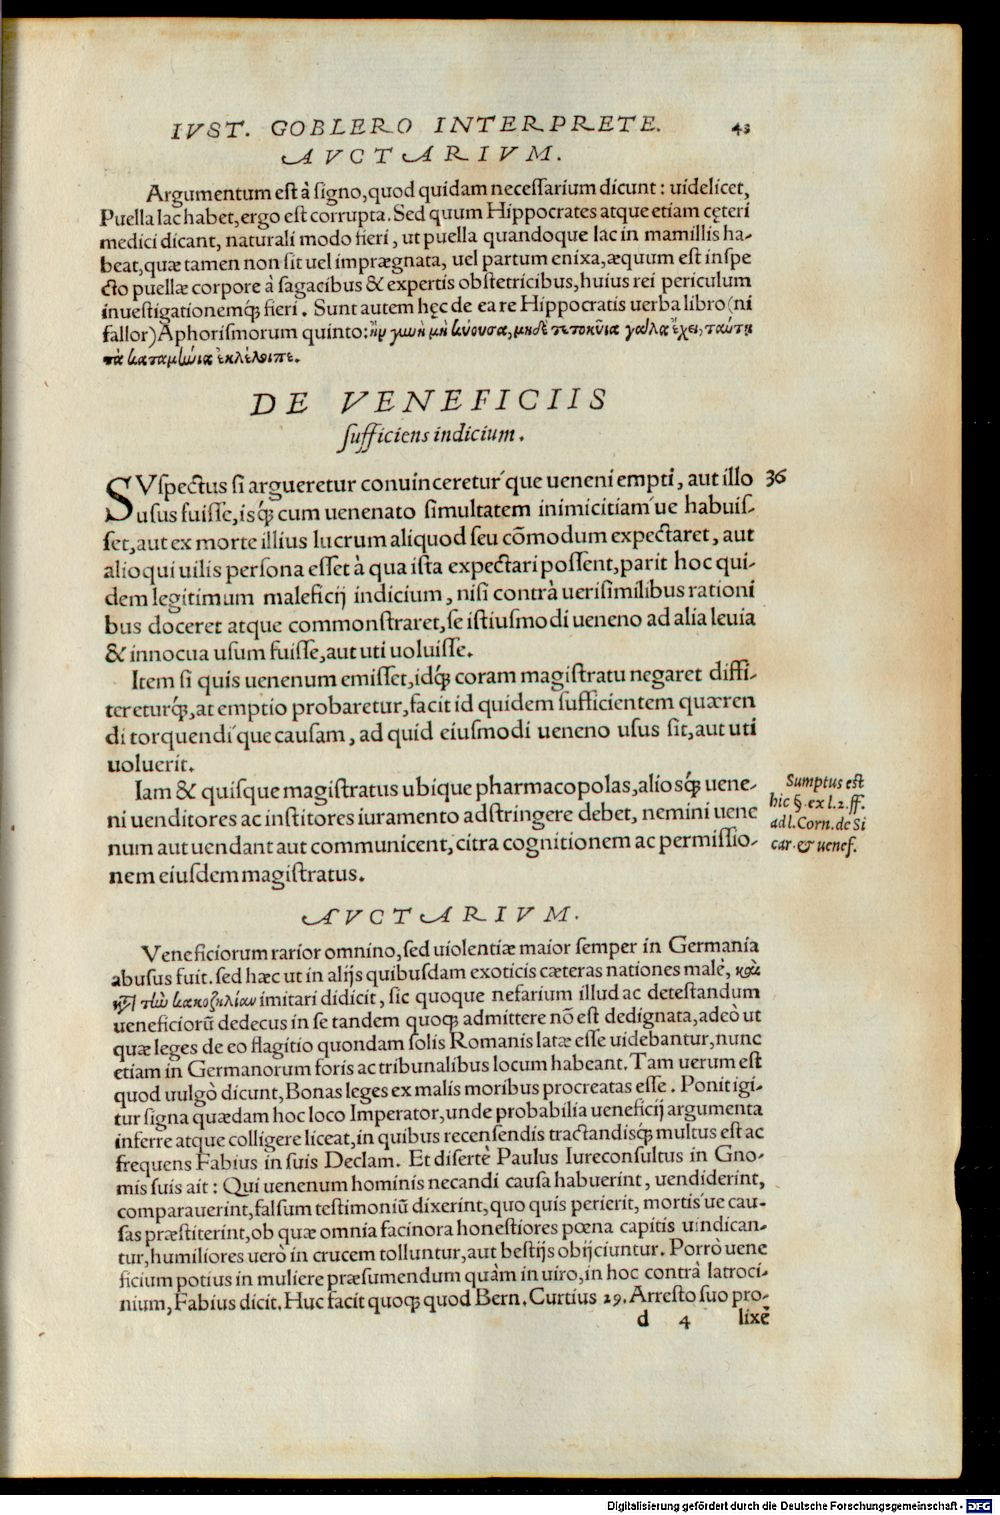 IVST. GOBLERO INTERPRETE. 43
AVCTARIVM.
Argumentum est à signo, quod quidam necessarium dicunt: uidelicet,
Puella lac habet, ergo est corrupta. Sed quum Hippocrates atque etiam cęteri
medici dicant, naturali modo fieri, ut puella quandoque lac in mamillis ha-
beat, quæ tamen non sit uel imprægnata, uel partum enixa, æquum est inspe
cto puellæ corpore à sagacibus & expertis obstetricibus, huius rei periculum
inuestigationemq́; fieri. Sunt autem hęc de ea re Hippocratis uerba libro (ni
fallor) Aphorismorum quinto: ἢν γυνὴ μὴ κύουσα, μηδὲ τετοκῦια γάλα ἔχει, ταύτη
τὰ καταμήνια ἐκλέλοιπε.
DE VENEFICIIS
sufficiens indicium.
SVspectus si argueretur conuinceretur´que ueneni empti, aut illo 36
usus fuisse, isq́; cum uenenato simultatem inimicitiam´ue habuis-
set, aut ex morte illius lucrum aliquod seu cõmodum expectaret, aut
alioqui uilis persona esset à qua ista expectari possent, parit hoc qui-
dem legitimum maleficij indicium, nisi contrà uerisimilibus rationi
bus doceret atque commonstraret, se istiusmodi ueneno ad alia leuia
& innocua usum fuisse, aut uti uoluisse.
Item si quis uenenum emisset, idq́; coram magistratu negaret diffi-
tereturq́;, at emptio probaretur, facit id quidem sufficientem quæren
di torquendi´que causam, ad quid eiusmodi ueneno usus sit, aut uti
uoluerit.
Iam & quisque magistratus ubique pharmacopolas, aliosq́; uene-
ni uenditores ac institores iuramento adstringere debet, nemini uene
num aut uendant aut communicent, citra cognitionem ac permissio-
nem eiusdem magistratus.
Sumptus est
hic §. ex l. 2. ff.
ad l. Corn. de Si
car. & uenef.
AVCTARIVM.
Veneficiorum rarior omnino, sed uiolentiæ maior semper in Germania
abusus fuit. sed hæc ut in alijs quibusdam exoticis cæteras nationes malè, καὶ
κτ τὼ κακοζηλίαν imitari didicit, sic quoque nefarium illud ac detestandum
ueneficiorũ dedecus in se tandem quoq; admittere nõ est dedignata, adeò ut
quæ leges de eo flagitio quondam solis Romanis latæ esse uidebantur, nunc
etiam in Germanorum foris ac tribunalibus locum habeant. Tam uerum est
quod uulgò dicunt, Bonas leges ex malis moribus procreatas esse. Ponit igi-
tur signa quædam hoc loco Imperator, unde probabilia ueneficij argumenta
inferre atque colligere liceat, in quibus recensendis tractandisq́; multus est ac
frequens Fabius in suis Declam. Et disertè Paulus Iureconsultus in Gno-
mis suis ait: Qui uenenum hominis necandi causa habuerint, uendiderint,
comparauerint, falsum testimoniũ dixerint, quo quis perierit, mortis´ue cau-
sas præstiterint, ob quæ omnia facinora honestiores pœna capitis uindican-
tur, humiliores uerò in crucem tolluntur, aut bestijs obijciuntur. Porrò uene
ficium potius in muliere præsumendum quàm in uiro, in hoc contrà latroci-
nium, Fabius dicit. Huc facit quoq; quod Bern. Curtius 29. Arresto suo pro-
d 4 lixè
Digitalisierung gefördert durch die Deutsche Forschungsgemeinschaft - DFG